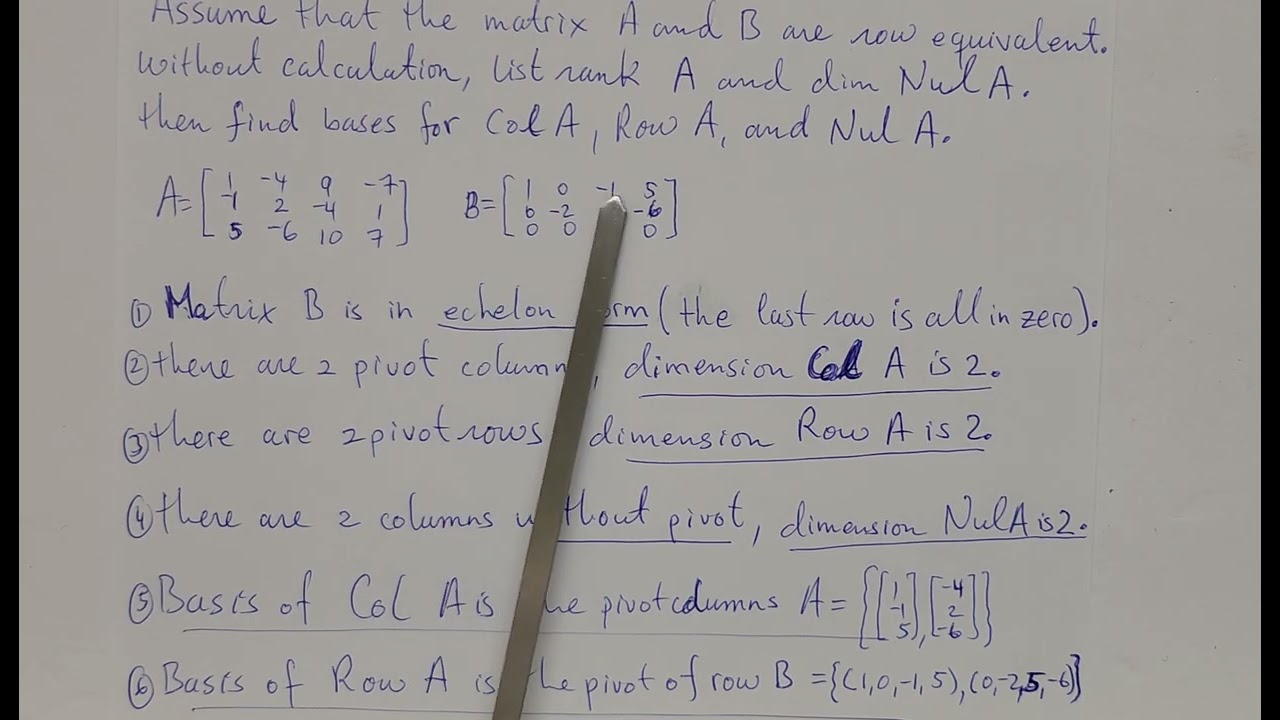 Assume that the matrix A and B are row equivalent.
without calculation, list rank A and dim Nul A.
then find bases for Col A, Row A, and Nul A.
A= [ 1 -4 9 -7 ] B= [ 1 0 -1 5 ]
-1 2 -4 1 0 -2 -6
5 -6 10 7 0 0 0
① Matrix B is in echelon orm (the last row is all in zero).
② there are 2 pivot column, dimension Col A is 2.
③ there are 2 pivot rows dimension Row A is 2.
④ there are 2 columns thout pivot, dimension Nul A is 2.
⑤ Basis of Col A is he pivot columns A = {[1 -1 5], [-4 2 -6]}
⑥ Basis of Row A is the pivot of row B = {(1,0,-1,5),(0,-2,5,-6)}